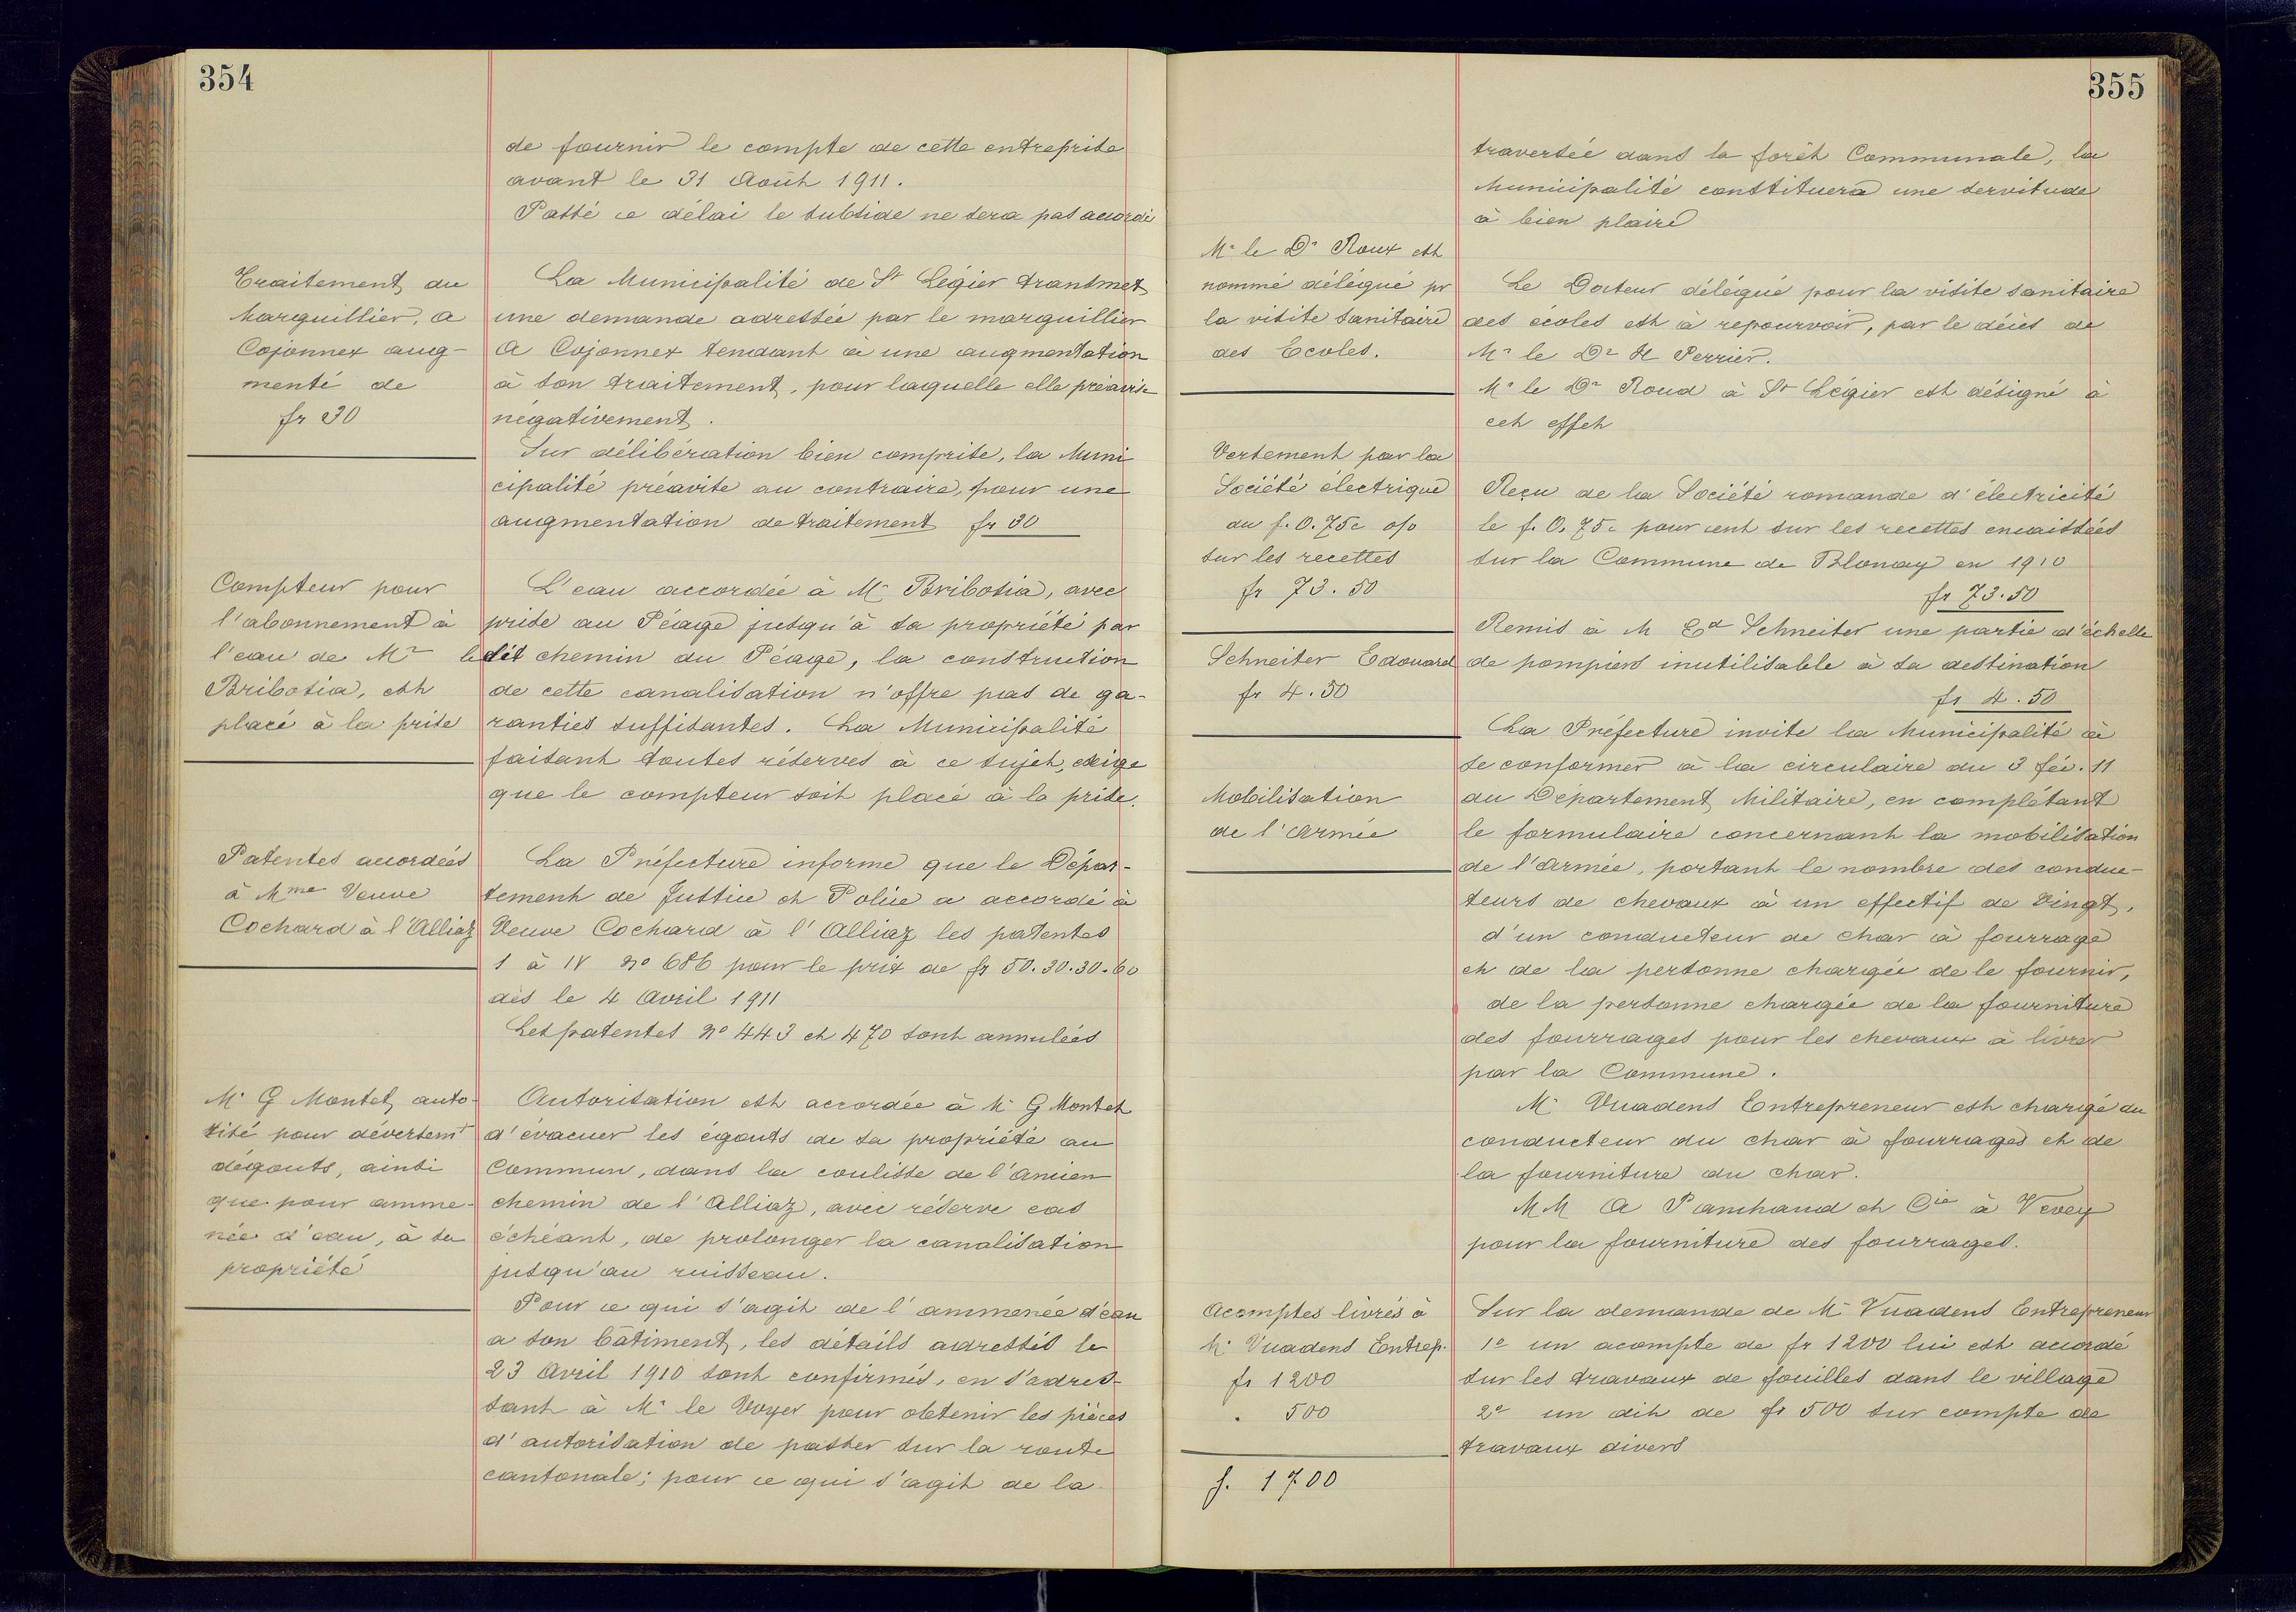 354
de fournir le compte de cette entreprise
avant le 31 Août 1911.
Passé ce délai le subside ne sera pas accordé
Traitement du
Marguillier, A
Cojonnex aug-
menté de
fr 30
La Municipalité de St Légier transmet
une demande adressée par le marguillier
A Cojonnex tendant à une augmentation
à son traitement, pour laquelle elle préavise
négativement.
Sur délibération bien comprise, la Muni
cipalité préavise au contraire, pour une
augmentation de traitement fr 30
Compteur pour
l'abonnement à
l'eau de Mr
Bribosia, est
placé à la prise
L'eau accordée à Mr Bribosia, avec
prise au Péage jusqu'à sa propriété par
le dit chemin du Péage, la construction
de cette canalisation n'offre pas de ga-
ranties suffisantes. La Municipalité
faisant toutes réserves à ce sujet, exige
que le compteur soit placé à la prise.
Patentes accordées
à Mme Veuve
Cochard à l'Alliaz
La Préfecture informe que le Dépar-
tement de Justice et Police a accordé à
Veuve Cochard à l'Alliaz les patentes
1 à IV No 686 pour le prix de fr 50.30.30.60
dès le 4 Avril 1911
Les patentes No 443 et 470 sont annulées
Mr G Montet, auto-
risé pour déversemt
dégouts, ainsi
que pour amme-
née d'eau, à sa
propriété
Autorisation est accordée à Mr G Montet
d'évacuer les égouts de sa propriété au
Commun, dans la coulisse de l'ancien
chemin de l'Alliaz, avec réserve cas
échéant, de prolonger la canalisation
jusqu'au ruisseau.
Pour ce qui s'agit de l'ammenée d'eau
a son bâtiment, les détails adressés le
23 Avril 1910 sont confirmés, en s'adres-
sant à Mr le Voyer pour obtenir les pièces
d'autorisation de passer sur la route
cantonale; pour ce qui s'agit de la
355
traversée dans la forêt Communale, la
Municipalité constituera une servitude
à bien plaire
Mr le Dr Roux est
nommé délégué pr
la visite sanitaire
des Ecoles.
Le Docteur délégué pour la visite sanitaire
des écoles est à repourvoir, par le décès de
Mr le Dr H Perrier.
Mr le Dr Roud à St Légier est désigné à
cet effet
Versement par la
Société électrique
du f. 0.75c o/o
sur les recettes
fr 73.50
Reçu de la Société romande d'électricité
le f. 0,75c pour cent sur les recettes encaissées
sur la Commune de Blonay en 1910
fr 73.50
Schneiter Edouard
fr 4.50
Remis à M Ed Schneiter une partie d'échelle
de pompiers inutilisable à sa destination
fr 4.50
Mobilisation
de l'Armée
La Préfecture invite la Municipalité à
se conformer à la circulaire du 3 fév. 11
du Département Militaire, en complétant
le formulaire concernant la mobilisation
de l'Armée, portant le nombre des conduc-
teurs de chevaux à un effectif de Vingt,
d'un conducteur de char à fourrage
et de la personne chargée de le fournir,
de la personne chargée de la fourniture
des fourrages pour les chevaux à livrer
par la Commune.
Mr Vuadens Entrepreneur est chargé du
conducteur du char à fourrages et de
la fourniture du char.
MM A Panchaud et Cie à Vevey
pour la fourniture des fourrages.
Acomptes livrés à
Mr Vuadens Entrep.
fr 1200
" 500
f. 1700
Sur la demande de Mr Vuadens Entrepreneur
1o un acompte de fr 1200 lui est accordé
sur les travaux de fouilles dans le village
2o un dit de fr 500 sur compte de
travaux divers